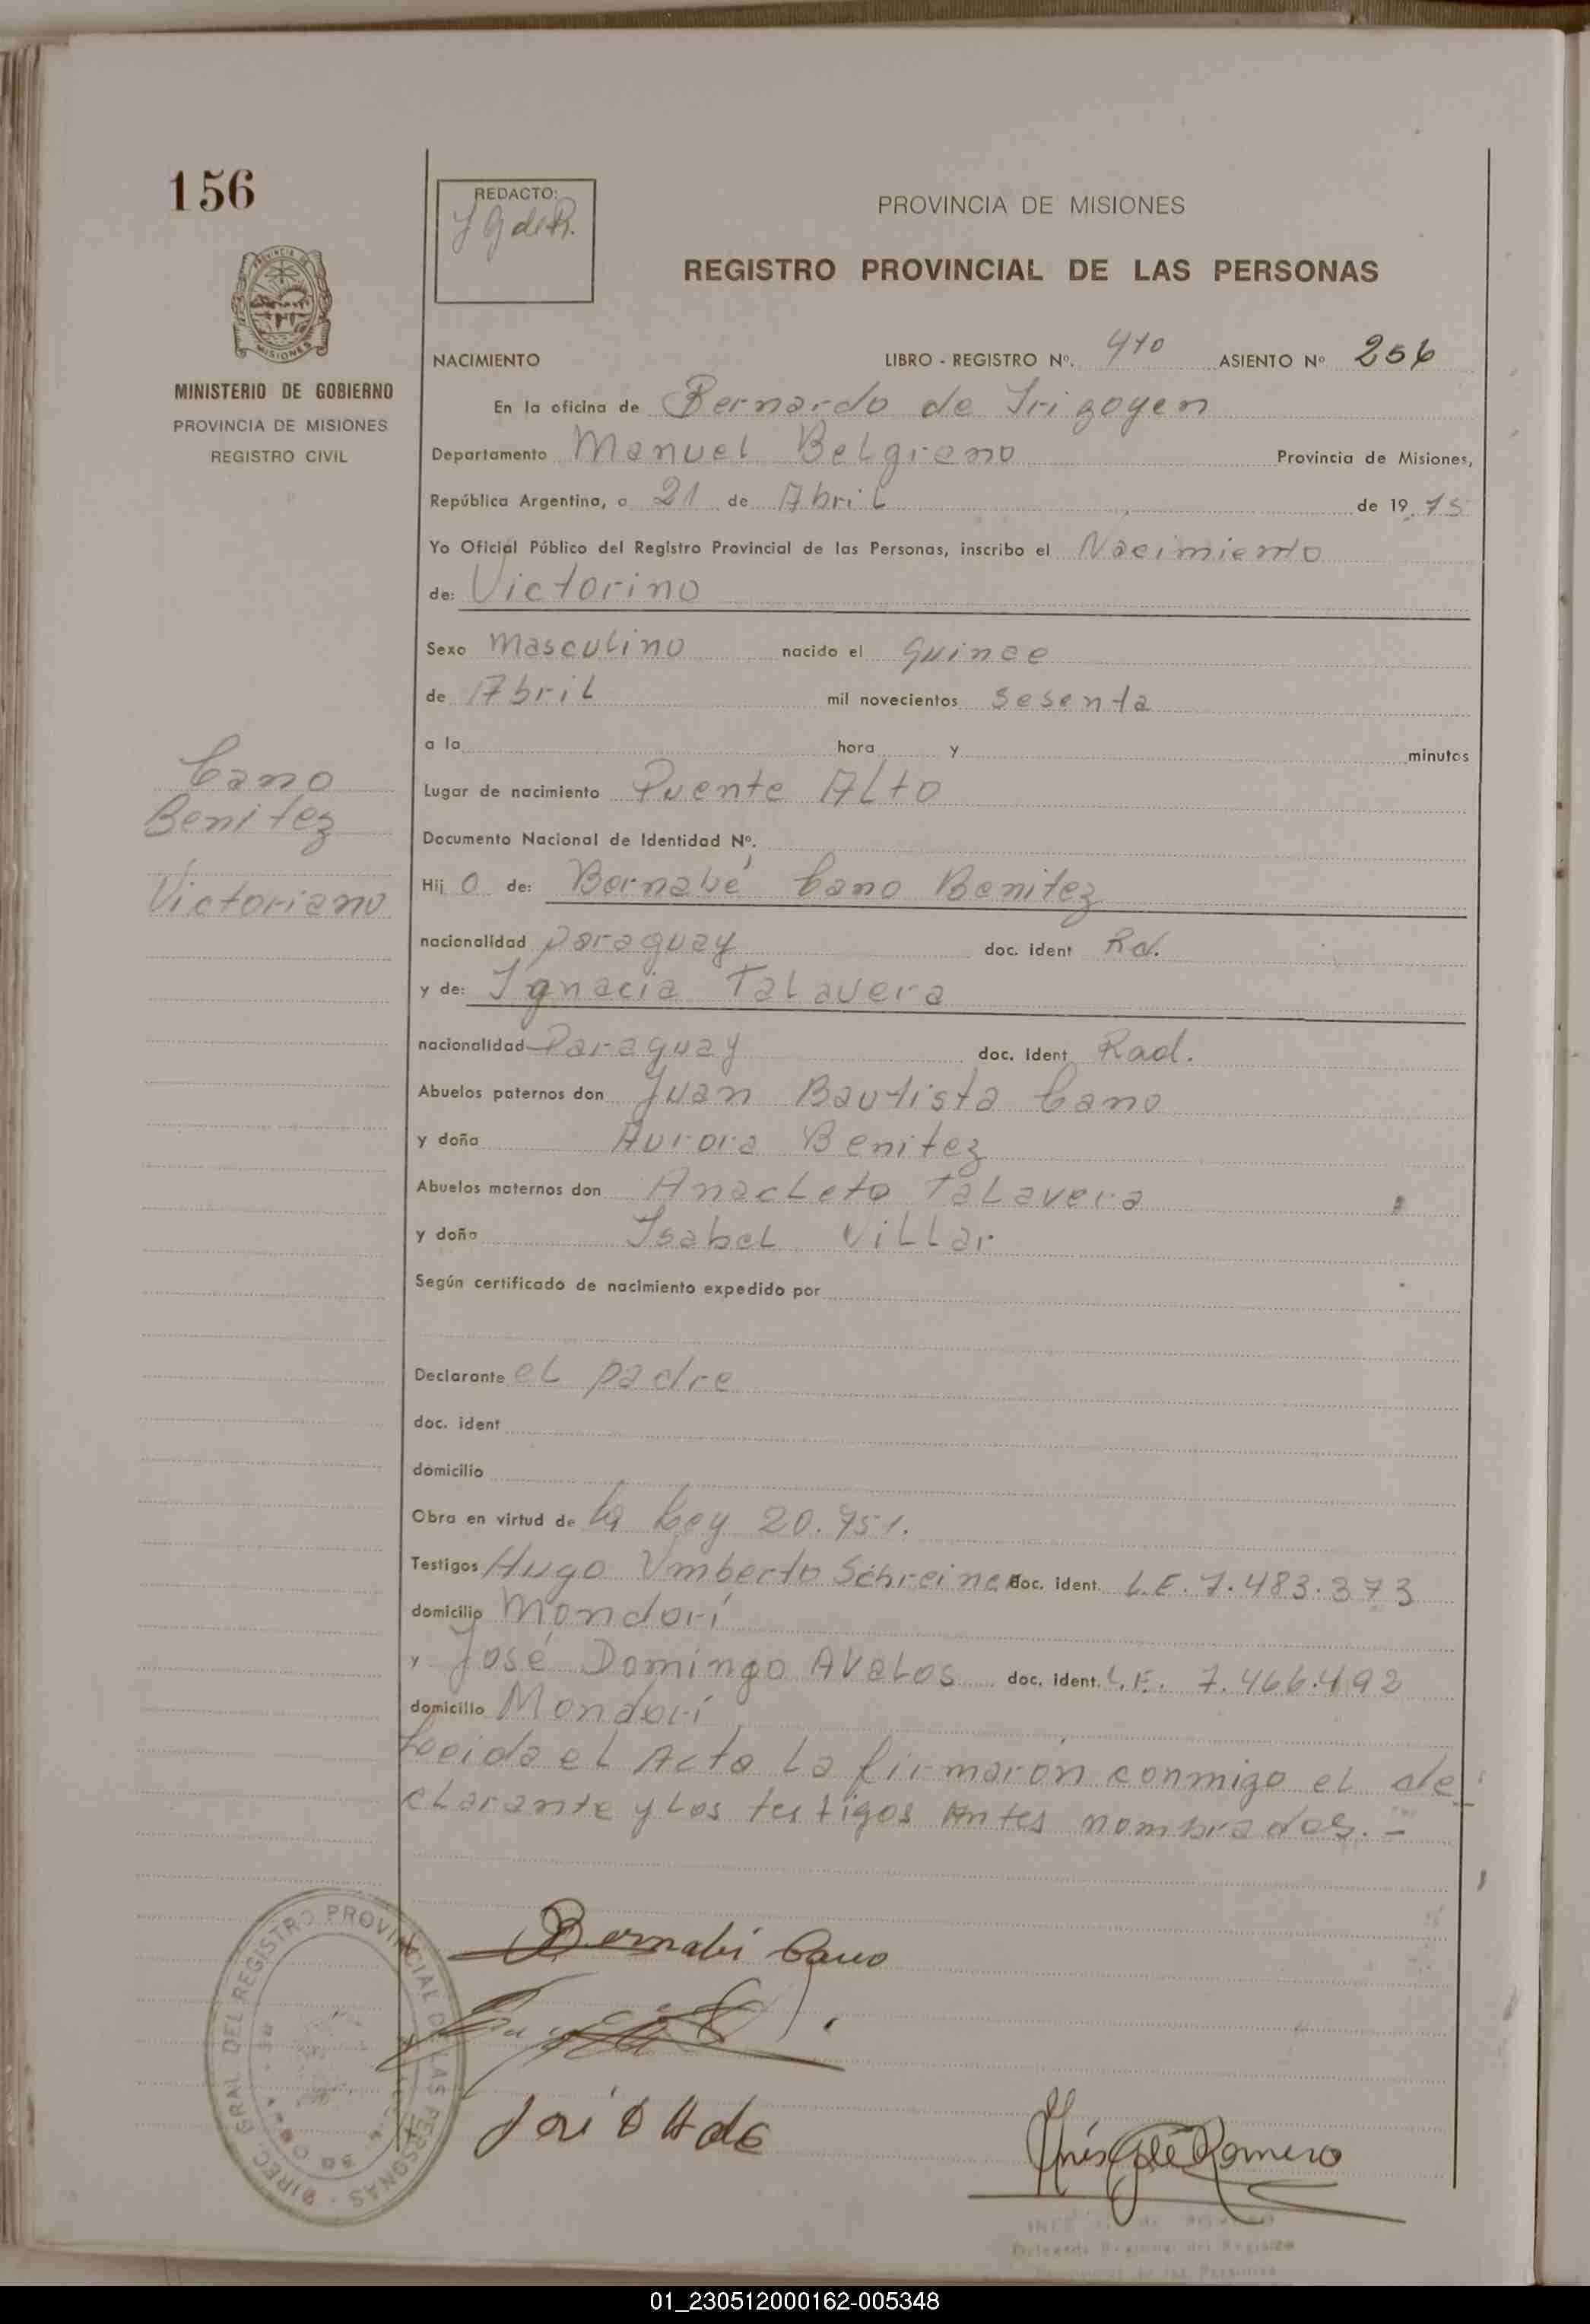 156
REDACTO:
J G de R.
PROVINCIA DE MISIONES
REGISTRO PROVINCIAL DE LAS PERSONAS
PROVINCIA DE
MISIONES
MINISTERIO DE GOBIERNO
PROVINCIA DE MISIONES
REGISTRO CIVIL
NACIMIENTO LIBRO - REGISTRO Nº. 410 ASIENTO Nº 256
En la oficina de Bernardo de Irigoyen
Departamento Manuel Belgrano Provincia de Misiones,
República Argentina, a 21 de Abril de 19 75
Yo Oficial Público del Registro Provincial de las Personas, inscribo el Nacimiento
de: Victorino
Sexo Masculino nacido el quince
de Abril mil novecientos sesenta
a la hora y minutos
Lugar de nacimiento Puente Alto
Documento Nacional de Identidad Nº.
Hij o de: Bernabé Cano Benitez
nacionalidad paraguay doc. ident Rd.
y de: Ignacia Talavera
nacionalidad Paraguay doc. ident Rad.
Abuelos paternos don Juan Bautista Cano
y doña Aurora Benitez
Abuelos maternos don Anacleto Talavera
y doña Isabel Villar
Según certificado de nacimiento expedido por
Declarante el padre
doc. ident
domicilio
Obra en virtud de la Ley 20.751.
Testigos Hugo Umberto Schreiner doc. ident. L.E. 7.483.373
domicilio Mondorí
y José Domingo Avalos doc. ident. L.E. 7.466.492
domicilio Mondorí
Leeida el Acta la firmarón conmigo el de-
clarante y los testigos antes nombrados. -
Cano
Benitez
Victoriano
Bernabé Cano
Inés G de Romero
DIREC. GRAL DEL REGISTRO PROVINCIAL DE LAS PERSONAS
Delegada Regional del Registro
de las Personas
01_230512000162-005348